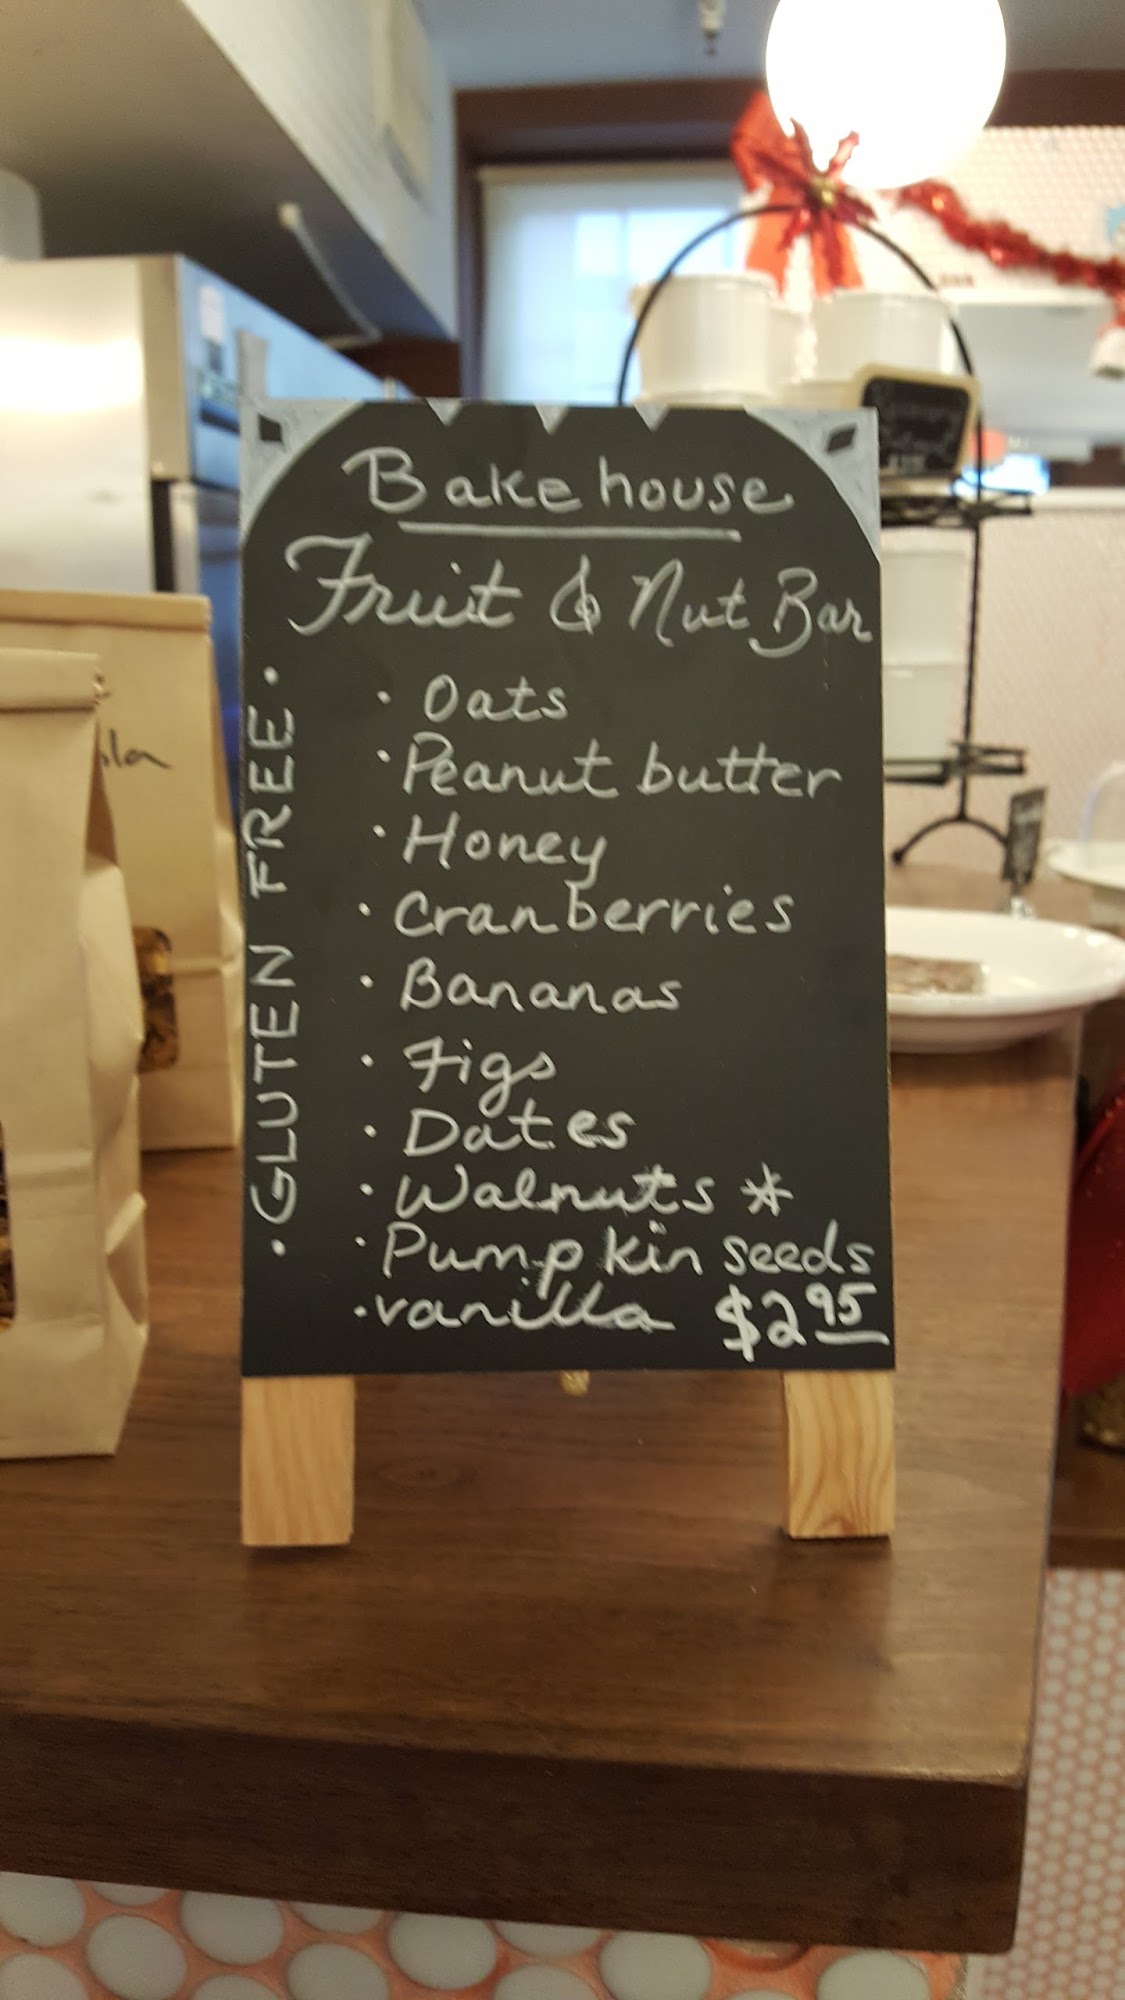 Bakehouse
Fruit & Nut Bar
• GLUTEN FREE •
• Oats
• Peanut butter
• Honey
• Cranberries
• Bananas
• Figs
• Dates
• Walnuts *
• Pumpkin seeds
• vanilla $2.95